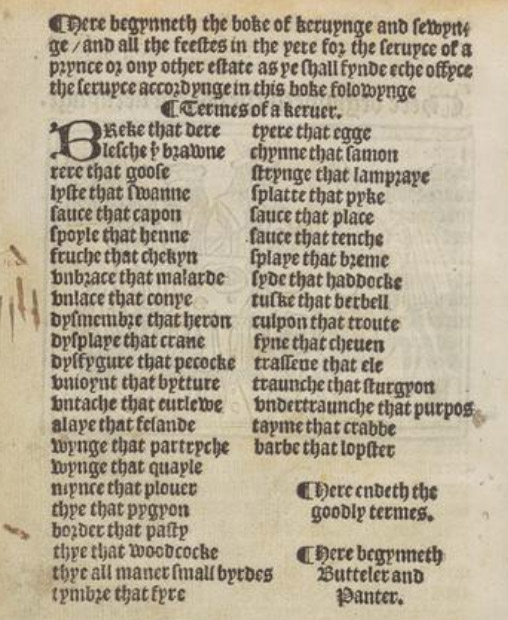 ¶Here begynneth the boke of keruynge and sewyn-
ge / and all the feestes in the yere for the seruyce of a
prynce or ony other estate as ye shall fynde eche offyce
the seruyce accordynge in this boke folowynge
¶Termes of a keruer.
BReke that dere
lesche yͤ brawne
rere that goose
lyfte that swanne
sauce that capon
spoyle that henne
fruche that chekyn
vnbrace that malarde
vnlace that conye
dysmembre that heron
dysplaye that crane
dysfygure that pecocke
vnioynt that bytture
vntache that curlewe
alaye that fesande
wynge that partryche
wynge that quayle
mynce that plouer
thye that pygyon
border that pasty
thye that woodcocke
thye all maner small byrdes
tymbre that fyre
tyere that egge
chynne that samon
strynge that lampraye
splatte that pyke
sauce that place
sauce that tenche
splaye that breme
syde that haddocke
tuske that berbell
culpon that troute
fyne that cheuen
trassene that ele
traunche that sturgyon
vndertraunche that purpos
tayme that crabbe
barbe that lopster
¶Here endeth the
goodly termes.
¶Here begynneth
Butteler and
Panter.